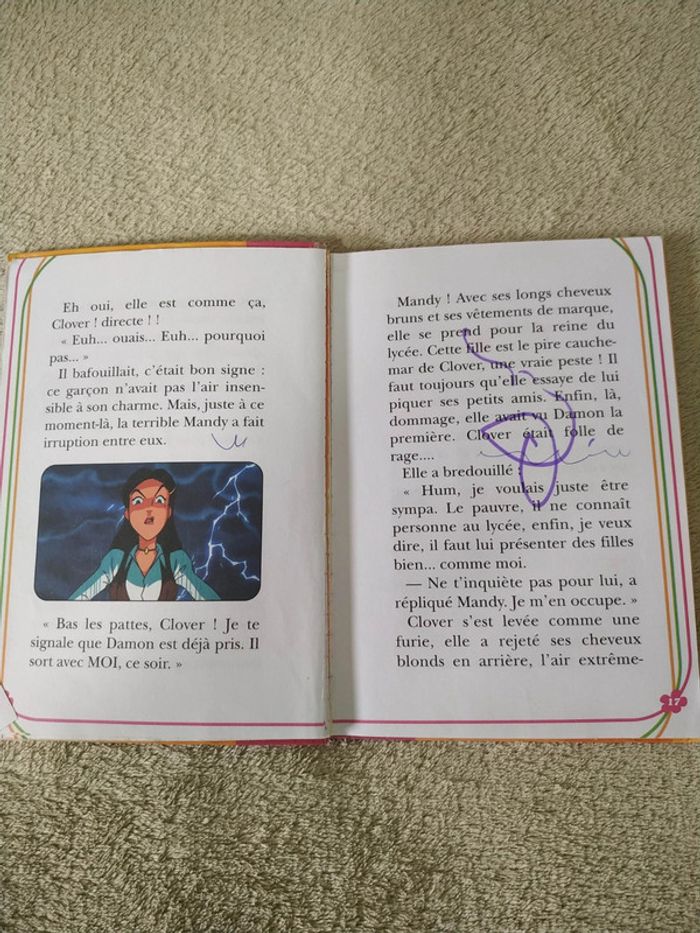 Eh oui, elle est comme ça,
Clover ! directe ! !
« Euh... ouais... Euh... pourquoi
pas... »
Il bafouillait, c'était bon signe :
ce garçon n'avait pas l'air insen-
sible à son charme. Mais, juste à ce
moment-là, la terrible Mandy a fait
irruption entre eux.
« Bas les pattes, Clover ! Je te
signale que Damon est déjà pris. Il
sort avec MOI, ce soir. »
Mandy ! Avec ses longs cheveux
bruns et ses vêtements de marque,
elle se prend pour la reine du
lycée. Cette fille est le pire cauche-
mar de Clover, une vraie peste ! Il
faut toujours qu'elle essaye de lui
piquer ses petits amis. Enfin, là,
dommage, elle avait vu Damon la
première. Clover était folle de
rage....
Elle a bredouillé :
« Hum, je voulais juste être
sympa. Le pauvre, il ne connaît
personne au lycée, enfin, je veux
dire, il faut lui présenter des filles
bien... comme moi.
— Ne t'inquiète pas pour lui, a
répliqué Mandy. Je m'en occupe. »
Clover s'est levée comme une
furie, elle a rejeté ses cheveux
blonds en arrière, l'air extrême-
17